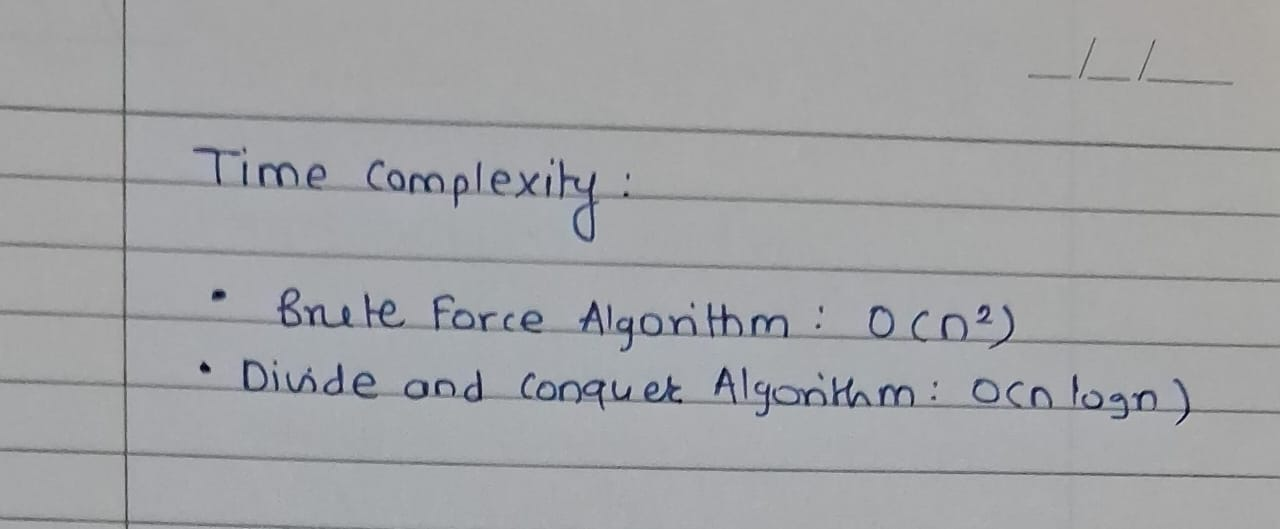 _/_/__
Time Complexity:
• Brute Force Algorithm: O(n²)
• Divide and Conquer Algorithm: O(n logn)